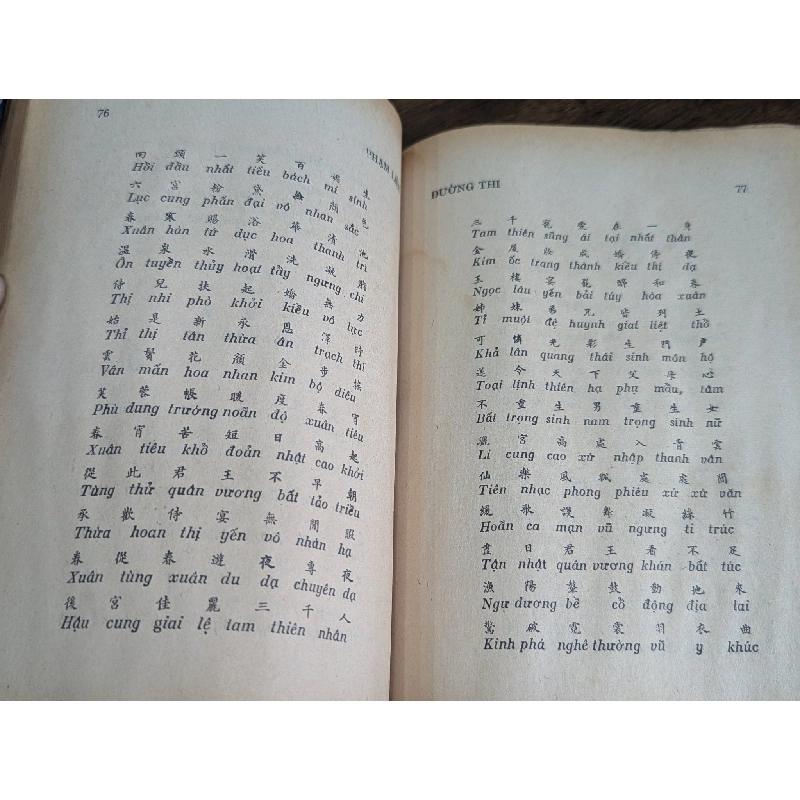 76
PHẠM LIỄU
回頭一笑百媚生
Hồi đầu nhất tiếu bách mị sinh
六宮粉黛無顏色
Lục cung phấn đại vô nhan sắc
春寒賜浴華清池
Xuân hàn tứ dục hoa thanh trì
溫泉水滑洗凝脂
Ôn tuyền thủy hoạt tẩy ngưng chi
侍兒扶起嬌無力
Thị nhi phò khởi kiều vô lực
始是新承恩澤時
Thỉ thị tân thừa ân trạch thì
雲鬢花顏金步搖
Vân mấn hoa nhan kim bộ diêu
芙蓉帳暖度春宵
Phù dung trướng noãn độ xuân tiêu
春宵苦短日高起
Xuân tiêu khổ đoản nhật cao khởi
從此君王不早朝
Tùng thử quân vương bất tảo triều
承歡侍宴無閒暇
Thừa hoan thị yến vô nhàn hạ
春從春遊夜專夜
Xuân tùng xuân du dạ chuyên dạ
後宮佳麗三千人
Hậu cung giai lệ tam thiên nhân
ĐƯỜNG THI
77
三千寵愛在一身
Tam thiên sủng ái tại nhất thân
金屋妝成嬌侍夜
Kim ốc trang thành kiều thị dạ
玉樓宴罷醉和春
Ngọc lâu yến bãi túy hòa xuân
姊妹弟兄皆列土
Tỉ muội đệ huynh giai liệt thổ
可憐光彩生門戶
Khả lân quang thái sinh môn hộ
遂令天下父母心
Toại lịnh thiên hạ phụ mẫu, tâm
不重生男重生女
Bất trọng sinh nam trọng sinh nữ
驪宮高處入青雲
Li cung cao xứ nhập thanh vân
仙樂風飄處處聞
Tiên nhạc phong phiêu xứ xứ văn
緩歌謾舞凝絲竹
Hoãn ca mạn vũ ngưng ti trúc
盡日君王看不足
Tận nhật quân vương khán bất túc
漁陽鼙鼓動地來
Ngư dương bề cổ động địa lai
驚破霓裳羽衣曲
Kinh phá nghê thường vũ y khúc